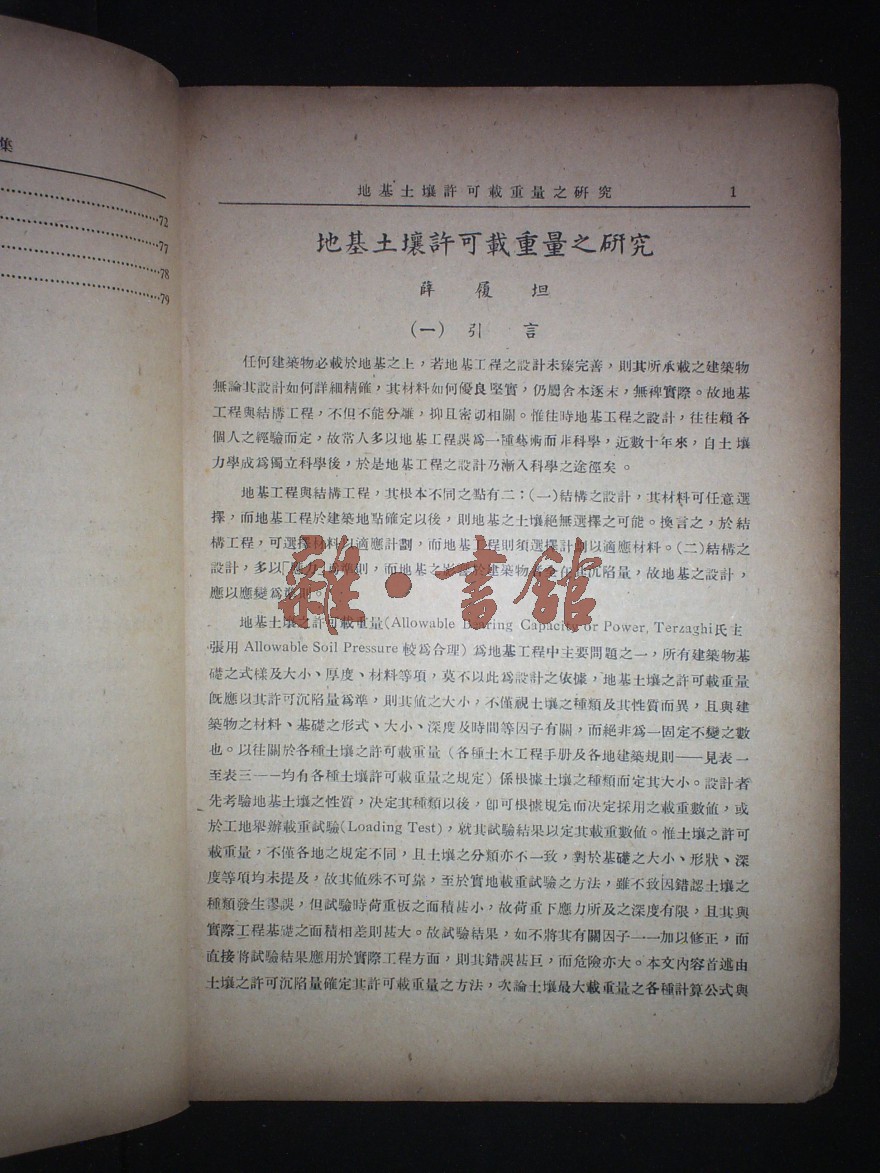 集
72
77
78
79
地基土壤許可載重量之硏究 1
地基土壤許可載重量之硏究
薛履坦
(一) 引言
任何建築物必載於地基之上，若地基工程之設計未臻完善，則其所承載之建築物
無論其設計如何詳細精確，其材料如何優良堅實，仍屬舍本逐末，無裨實際。故地基
工程與結構工程，不但不能分離，抑且密切相關。惟往時地基工程之設計，往往賴各
個人之經驗而定，故常人多以地基工程誤爲一種藝術而非科學，近數十年來，自土壤
力學成爲獨立科學後，於是地基工程之設計乃漸入科學之途徑矣。
地基工程與結構工程，其根本不同之點有二；(一)結構之設計，其材料可任意選
擇，而地基工程於建築地點確定以後，則地基之土壤絕無選擇之可能。換言之，於結
構工程，可選擇材料以適應計劃，而地基工程則須選擇計劃以適應材料。(二)結構之
設計，多以應力爲準則，而地基之影響於建築物者全在其沉陷量，故地基之設計，
應以應變爲準則。
地基土壤之許可載重量(Allowable Bearing Capacity or Power, Terzaghi氏主
張用 Allowable Soil Pressure 較爲合理) 爲地基工程中主要問題之一，所有建築物基
礎之式樣及大小、厚度、材料等項，莫不以此爲設計之依據，地基土壤之許可載重量
旣應以其許可沉陷量爲準，則其値之大小，不僅視土壤之種類及其性質而異，且與建
築物之材料、基礎之形式、大小、深度及時間等因子有關，而絕非爲一固定不變之數
也。以往關於各種土壤之許可載重量（各種土木工程手册及各地建築規則——見表一
至表三——均有各種土壤許可載重量之規定）係根據土壤之種類而定其大小。設計者
先考驗地基土壤之性質，决定其種類以後，卽可根據規定而决定採用之載重數値，或
於工地舉辦載重試驗(Loading Test)，就其試驗結果以定其載重數値。惟土壤之許可
載重量，不僅各地之規定不同，且土壤之分類亦不一致，對於基礎之大小、形狀、深
度等項均未提及，故其値殊不可靠，至於實地載重試驗之方法，雖不致因錯認土壤之
種類發生謬誤，但試驗時荷重板之面積甚小，故荷重下應力所及之深度有限，且其與
實際工程基礎之面積相差則甚大。故試驗結果，如不將其有關因子一一加以修正，而
直接將試驗結果應用於實際工程方面，則其錯誤甚巨，而危險亦大。本文內容首述由
土壤之許可沉陷量確定其許可載重量之方法，次論土壤最大載重量之各種計算公式與
雜·書館